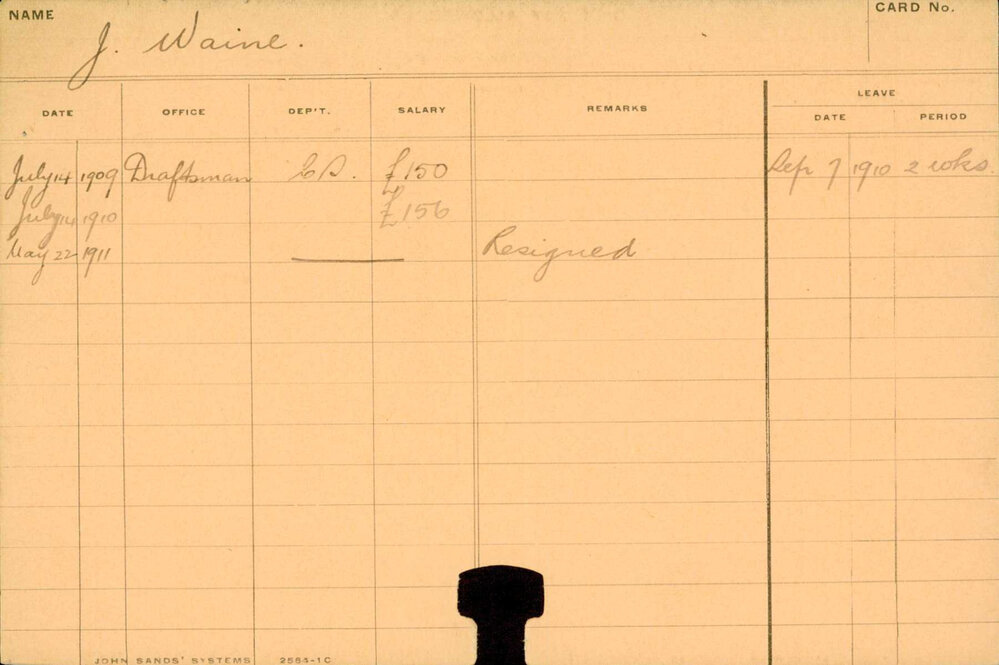 NAME
CARD No.
J. Waine.
LEAVE
DATE OFFICE DEP'T. SALARY REMARKS DATE PERIOD
July 14 1909 Draftsman £150 Sep 7 1910 2 wks.
July 14 1910 £156
May 22 1911 Resigned
JOHN SANDS' SYSTEMS 2584-1C